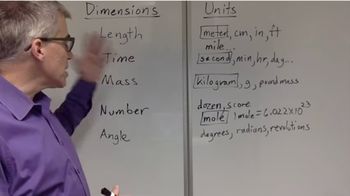 Dimensions Units
Length meter, cm, in, ft
mile...
Time second, min, hr, day...
Mass kilogram, g, pound mass
dozen, score
Number mole 1 mole = 6.022x10^23
Angle degrees, radians, revolutions